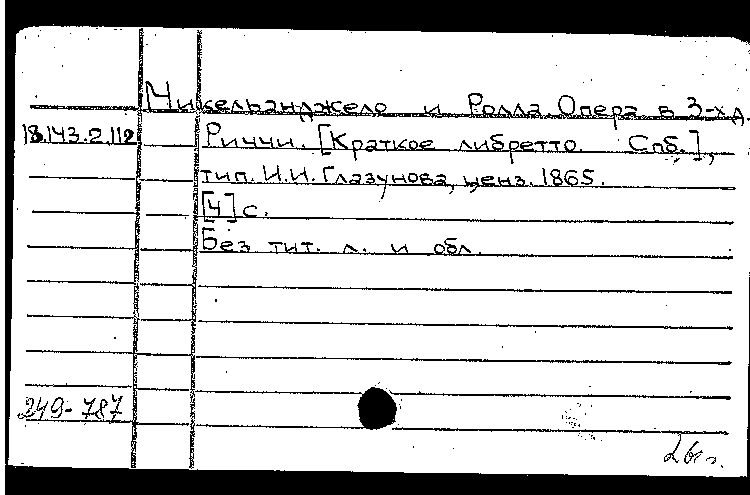 Микельанджело и Ролла. Опера в 3-х д.
18.143.2.112 Риччи. [Краткое либретто. Спб.],
тип. И.И. Глазунова, ценз. 1865.
[4] с.
Без тит. л. и обл.
249-787